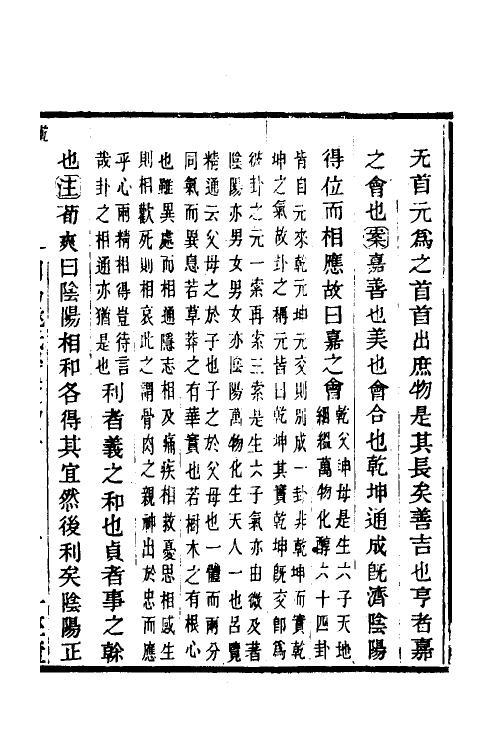 无首元爲之首首出庶物是其長矣善吉也亨者嘉
之會也案嘉善也美也會合也乾坤通成旣濟陰陽
得位而相應故曰嘉之會乾父坤母是生六子天地
絪縕萬物化醇六十四卦
皆自元來乾元坤元交則別成一卦非乾坤而實乾
坤之氣故卦之稱元皆曰乾坤其實乾坤旣交卽爲
彼卦之元一索再索三索是生六子氣亦由微及著
陰陽亦男女男女亦陰陽萬物化生天人一也呂覽
精通云父母之於子也子之於父母也一體而兩分
同氣而異息若草莽之有華實也若樹木之有根心
也雖異處而相通隱志相及痛疾相救憂思相感生
則相歡死則相哀此之謂骨肉之親神出於忠而應
乎心兩精相得豈待言
哉卦之相通亦猶是也利者義之和也貞者事之榦
也注荀爽曰陰陽相和各得其宜然後利矣陰陽正